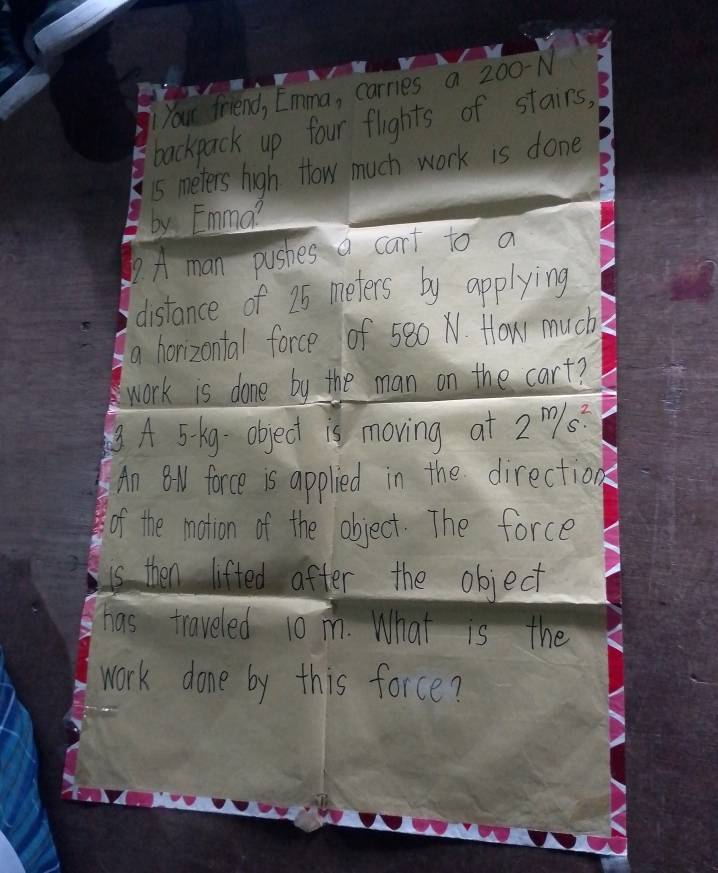 1. Your friend, Emma, carries a 200-N
backpack up four flights of stairs,
15 meters high. How much work is done
by Emma?
2. A man pushes a cart to a
distance of 25 meters by applying
a horizontal force of 580 N. How much
work is done by the man on the cart?
3. A 5-kg- object is moving at 2 m/s².
An 8-N force is applied in the direction
of the motion of the object. The force
is then lifted after the object
has traveled 10 m. What is the
work done by this force?